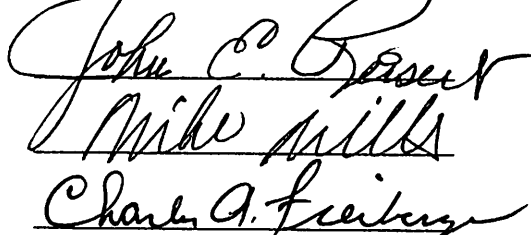 John E. 
Mike Mills
Charles A. Freiberger